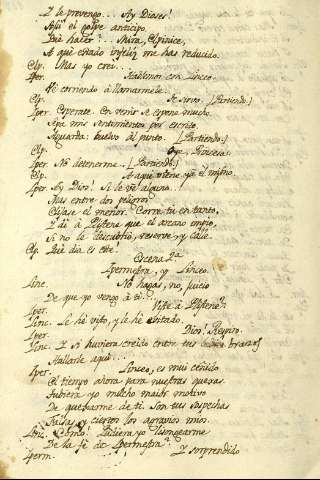 Y le prevengo... Ay Dioses!
el golpe anticipo.
Qué hacer?... Mira, Elpinice,
A qué estado infeliz me has reducido.
Elp. Mas yo creí...
Iper. Hablemos con Linceo.
Vé corriendo á llamarmele.
Elp. Te sirvo. (Partiendo.)
Iper. Esperate. En venir se espone mucho.
Sepa mis sentimientos por escrito.
Aguarda: vuelvo al punto. (Partiendo.)
Elp. Oye, Princesa.
Iper. No detenerme. (Partiendo.)
Elp. A aqui viene ya el mismo.
Iper. Ay Dios! Si le vé alguno...!
Mas entre dos peligros
Elijase el menor. Corre tu en tanto,
Y di á Plistene que el arcano impio,
Si no le descubrió, reserve, y calle.
Elp. Qué dia es este!
Escena 2ª
Ipermestra, y Linceo.
Linc. No hagas, no, juicio
De que yo vengo á tí...
Iper. Viste á Plistene?
Linc. Le hé visto, y le hé evitado.
Iper. Dios! Respiro.
Linc. Y si huviera creido entre tus brazos
Hallarle aqui...
Iper. Linceo, es muy ceñido
El tiempo ahora para nuestras quexas.
Tubiera yo mucho maior motivo
De quexarme de tí. Son tus sospechas
Falsas, y ciertos los agravios mios.
Linc. Cómo! Pudiera yo lisongearme
De la fé de Ipermestra?
Iperm. Y sorprendido